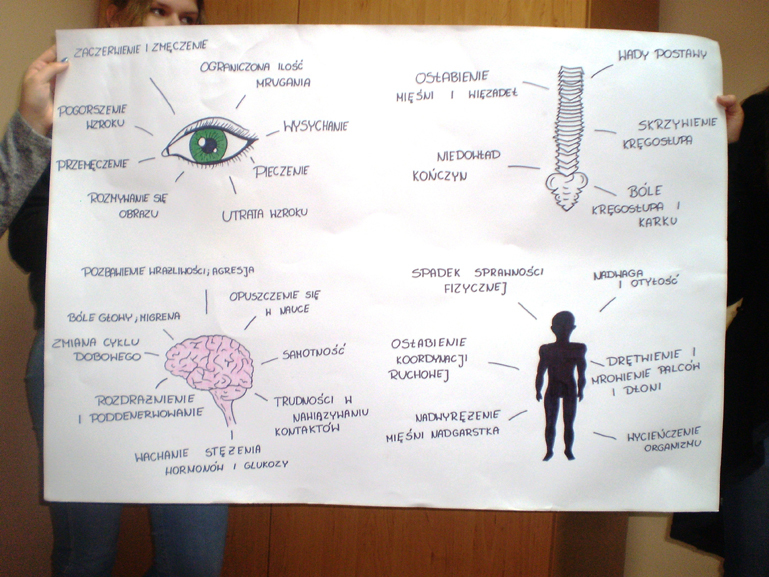 ZACZERWIENIE I ZMĘCZENIE
OGRANICZONA ILOŚĆ
MRUGANIA
POGORSZENIE
WZROKU
WYSYCHANIE
PRZEMĘCZENIE
PIECZENIE
ROZMYWANIE SIĘ
OBRAZU
UTRATA WZROKU
WADY POSTAWY
OSŁABIENIE
MIĘŚNI I WIĘZADEŁ
SKRZYWIENIE
KRĘGOSŁUPA
NIEDOWŁAD
KOŃCZYN
BÓLE
KRĘGOSŁUPA I
KARKU
POZBAWIENIE WRAŻLIWOŚCI, AGRESJA
OPUSZCZENIE SIĘ
W NAUCE
BÓLE GŁOWY, MIGRENA
ZMIANA CYKLU
DOBOWEGO
SAMOTNOŚĆ
ROZDRAŻNIENIE
I PODDENERWOWANIE
TRUDNOŚCI W
NAWIĄZYWANIU
KONTAKTÓW
WACHANIE STĘŻENIA
HORMONÓW I GLUKOZY
SPADEK SPRAWNOŚCI
FIZYCZNEJ
NADWAGA
I OTYŁOŚĆ
OSŁABIENIE
KOORDYNACJI
RUCHOWEJ
DRĘTWIENIE I
MROWIENIE PALCÓW
I DŁONI
NADWYRĘŻENIE
MIĘŚNI NADGARSTKA
WYCIEŃCZENIE
ORGANIZMU